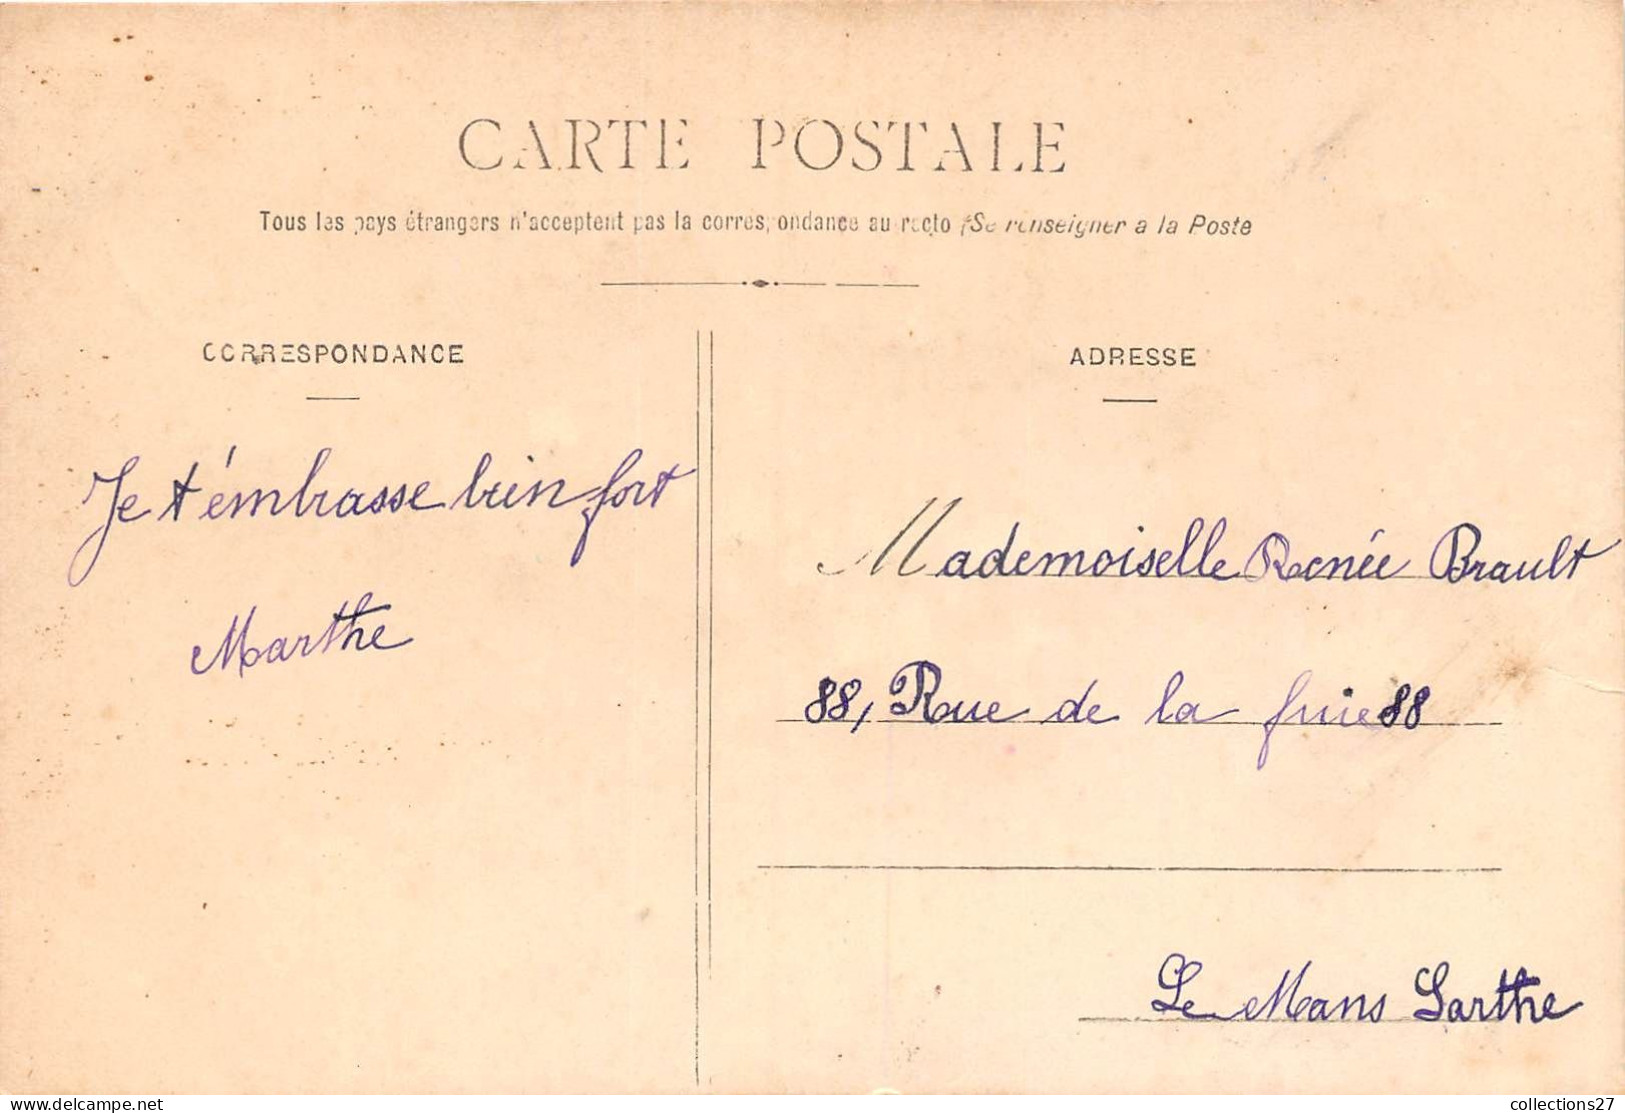 CARTE POSTALE
Tous les pays étrangers n'acceptent pas la correspondance au recto (Se renseigner a la Poste
CORRESPONDANCE
ADRESSE
Je t'émbrasse bien fort
Marthe
Mademoiselle Renée Brault
88, Rue de la fuie 88
Le Mans Sarthe
collections27